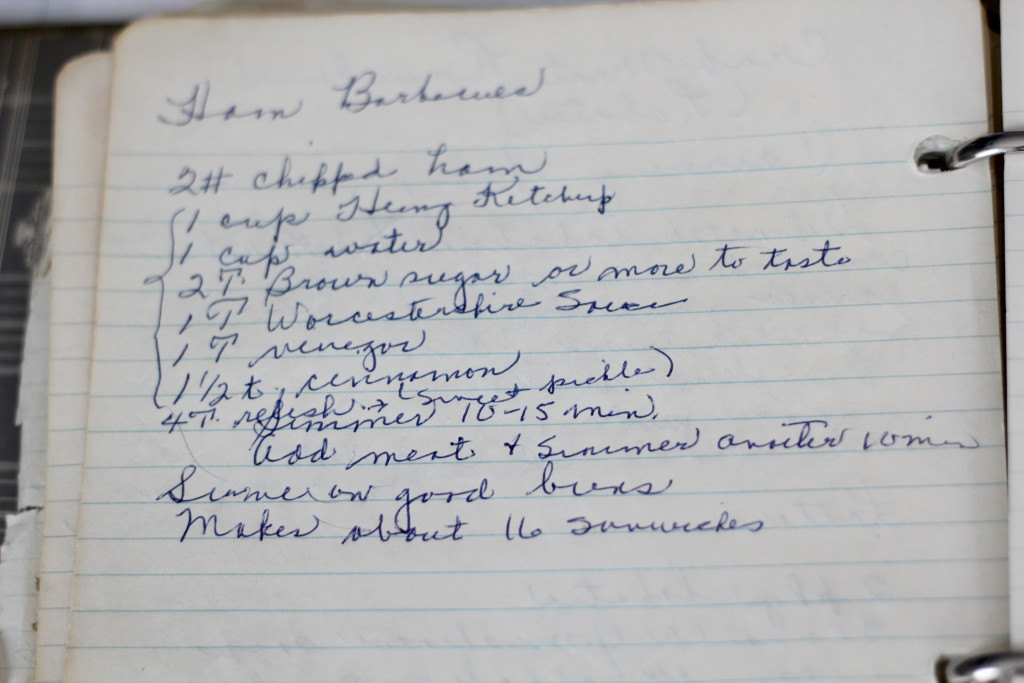 Ham Barbecues
2# chipped ham
1 cup Heinz Ketchup
1 cup water
2 T. Brown sugar or more to taste
1 T Worcestershire Sauce
1 T vinegar
1 1/2 t. cinnamon
4 T. relish → (Sweet pickle)
Simmer 10-15 min.
Add meat & Simmer another 10 min
Serve on good buns
Makes about 16 sandwiches